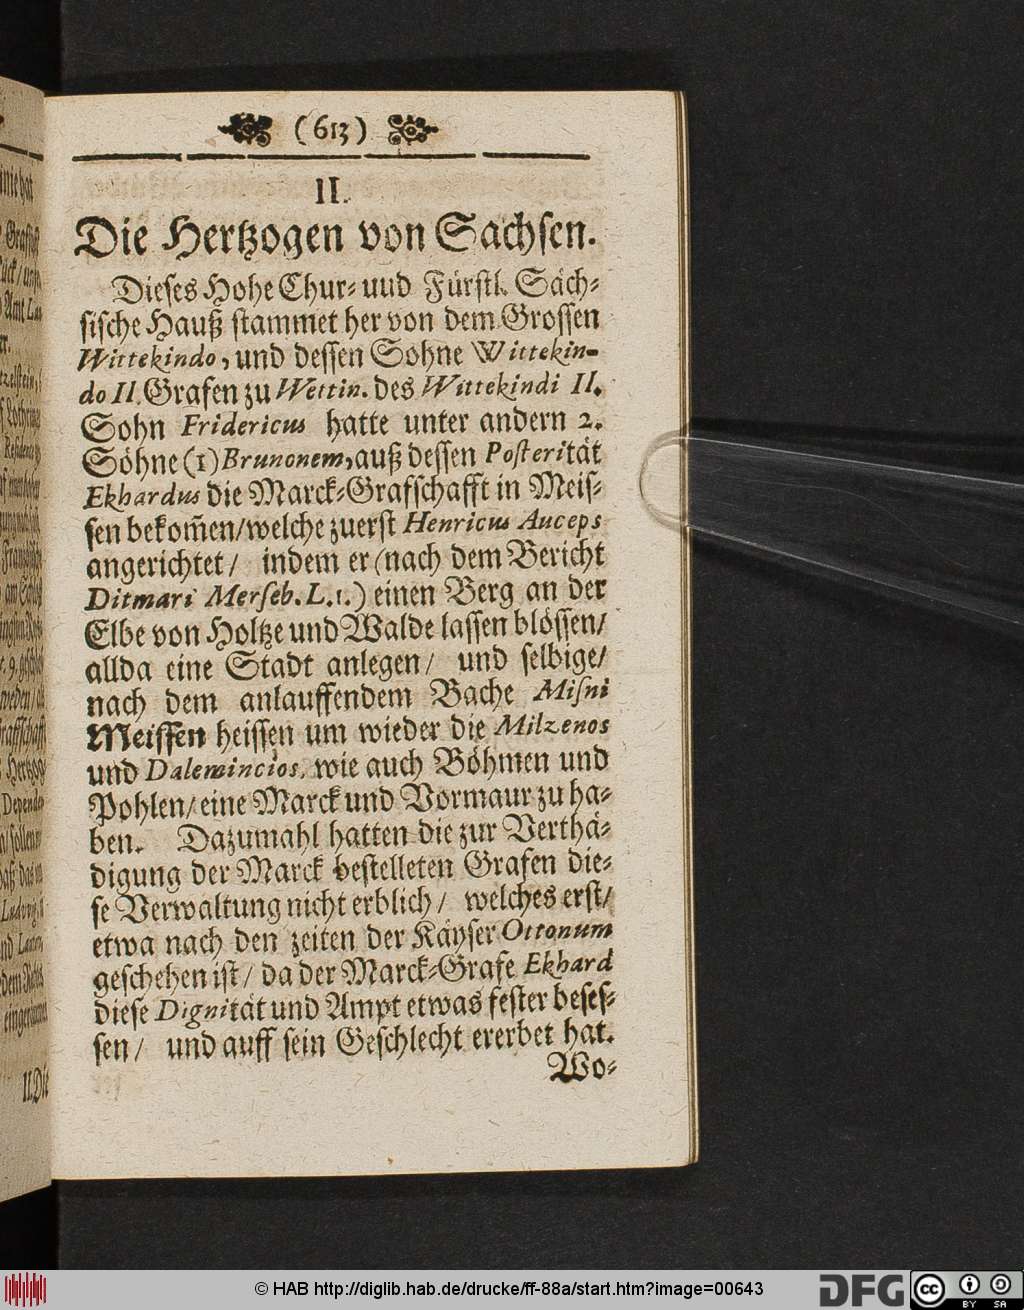 (613)
II.
Die Hertzogen von Sachsen.
Dieses Hohe Chur- und Fürstl. Säch-
sische Hauß stammet her von dem Grossen
Wittekindo, und dessen Sohne Wittekin-
do II. Grafen zu Wettin. des Wittekindi II.
Sohn Fridericus hatte unter andern 2.
Söhne (1) Brunonem, auß dessen Posterität
Ekhardus die Marck-Grafschafft in Meis-
sen bekom̃en/ welche zuerst Henricus Auceps
angerichtet/ indem er (nach dem Bericht
Ditmari Merseb. L. 1.) einen Berg an der
Elbe von Holtze und Walde lassen blössen/
allda eine Stadt anlegen/ und selbige/
nach dem anlauffendem Bache Misni
Meissen heissen um wieder die Milzenos
und Dalemincios, wie auch Böhmen und
Pohlen/ eine Marck und Vormaur zu ha-
ben. Dazumahl hatten die zur Verthä-
digung der Marck bestelleten Grafen die-
se Verwaltung nicht erblich/ welches erst/
etwa nach den zeiten der Käyser Ottonum
geschehen ist/ da der Marck-Grafe Ekhard
diese Dignität und Ampt etwas fester beses-
sen/ und auff sein Geschlecht ererbet hat.
Wo-
II. Die
© HAB http://diglib.hab.de/drucke/ff-88a/start.htm?image=00643
DFG
cc
BY SA